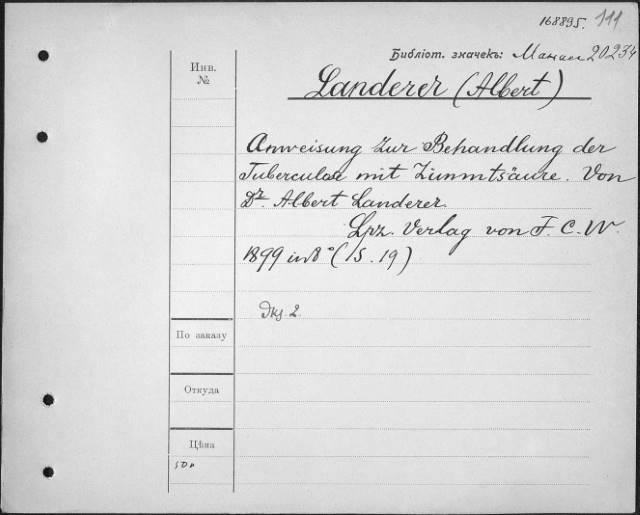 168895. 111
Библіот. значекъ: Манас 20234
Инв.
№
Landerer (Albert)
Anweisung zur Behandlung der
Tuberculose mit Zimmtsäure. Von
Dr. Albert Landerer
Lpz. Verlag von F. C. W.
1899 in 8° (S. 19)
Экз. 2.
По заказу
Откуда
Цѣна
50